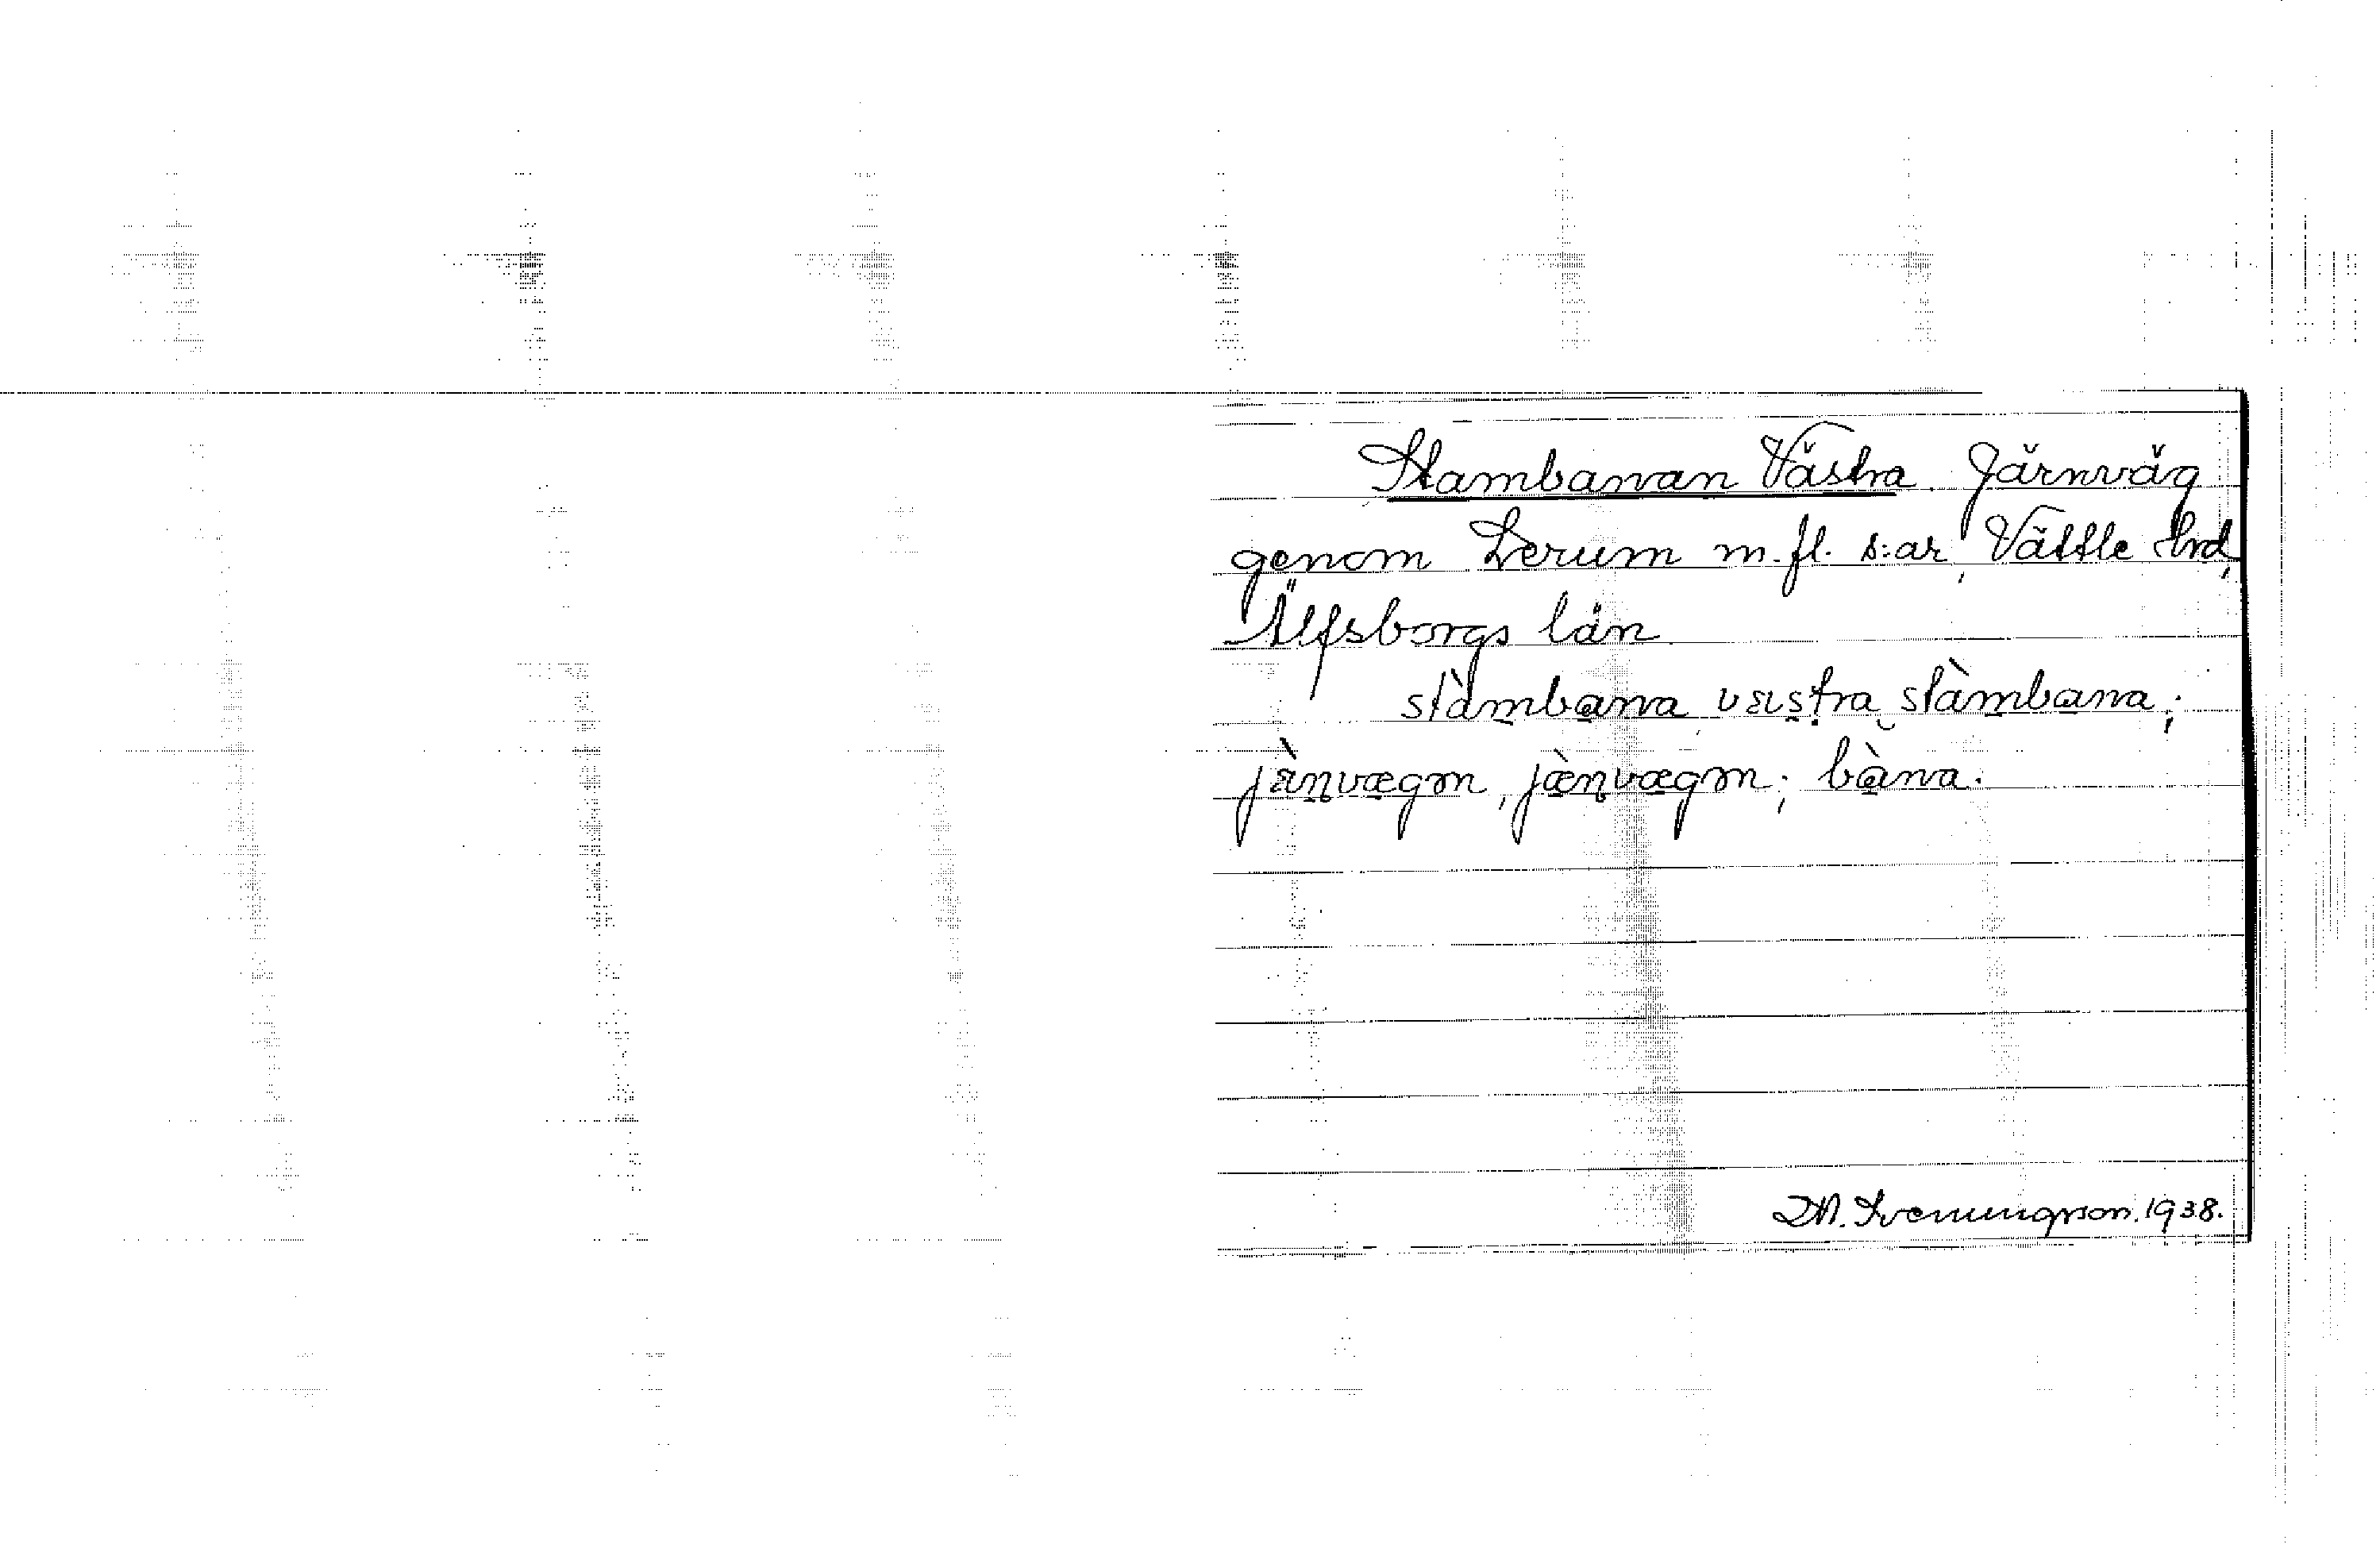 Stambanan Västra. Järnväg
genom Lerum m.fl. s:ar, Vättle hrd,
Älfsborgs län.
stàmbana, vɛstra stàmbana;
jæ̀nvægən, jæ̀nvægən; bàna.
1938.